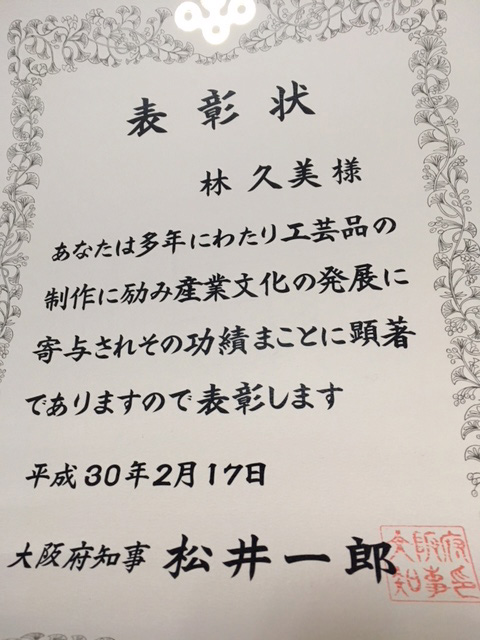 表彰状
林久美様
あなたは多年にわたり工芸品の
制作に励み産業文化の発展に
寄与されその功績まことに顕著
でありますので表彰します
平成30年2月17日
大阪府知事 松井一郎
大阪府知事印